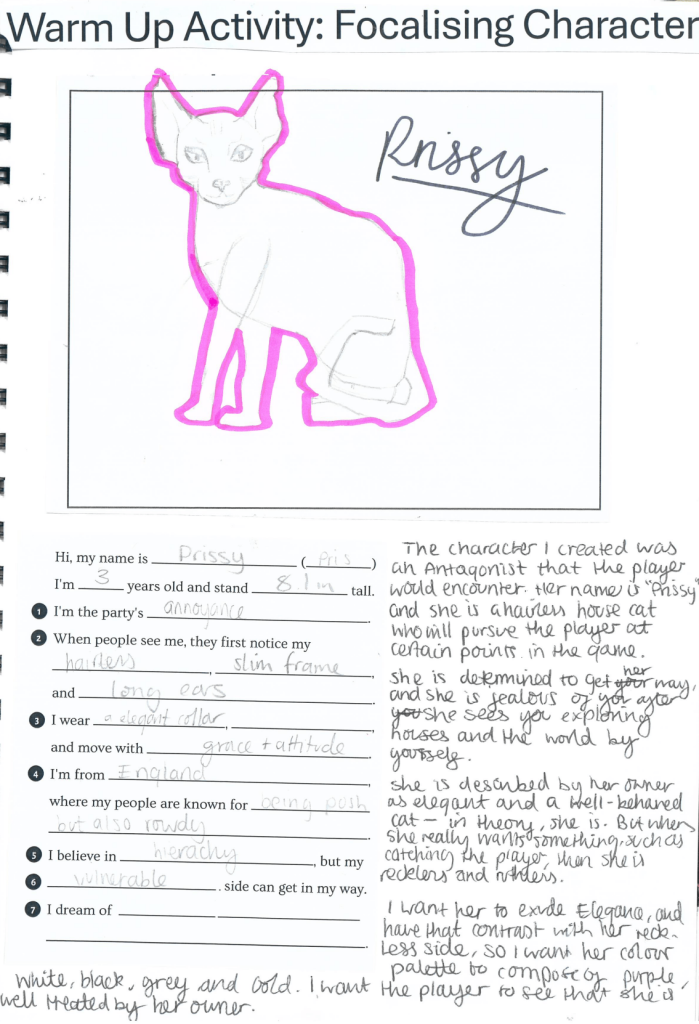 Warm Up Activity: Focalising Character
Prissy
Hi, my name is Prissy (Pris)
I'm 3 years old and stand 8.1in tall.
1 I'm the party's annoyance.
2 When people see me, they first notice my
hairless, slim frame
and long ears.
3 I wear a elegant collar,
and move with grace + attitude.
4 I'm from England
where my people are known for being posh
but also rowdy.
5 I believe in hierachy, but my
6 vulnerable. side can get in my way.
7 I dream of
The character I created was
an Antagonist that the player
would encounter. Her name is "Prissy"
and she is a hairless house cat
who will pursue the player at
certain points in the game.
she is determined to get your her way,
and she is jealous of you after
you she sees you exploring
houses and the world by
yourself.
she is described by her owner
as elegant and a well-behaved
cat - in theory, she is. But when
she really wants something, such as
catching the player, then she is
reckless and ruthless.
I want her to exude Elegance, and
have that contrast with her reck-
less side, so I want her colour
palette to compose of purple,
white, black, grey and Gold. I want the player to see that she is
well treated by her owner.